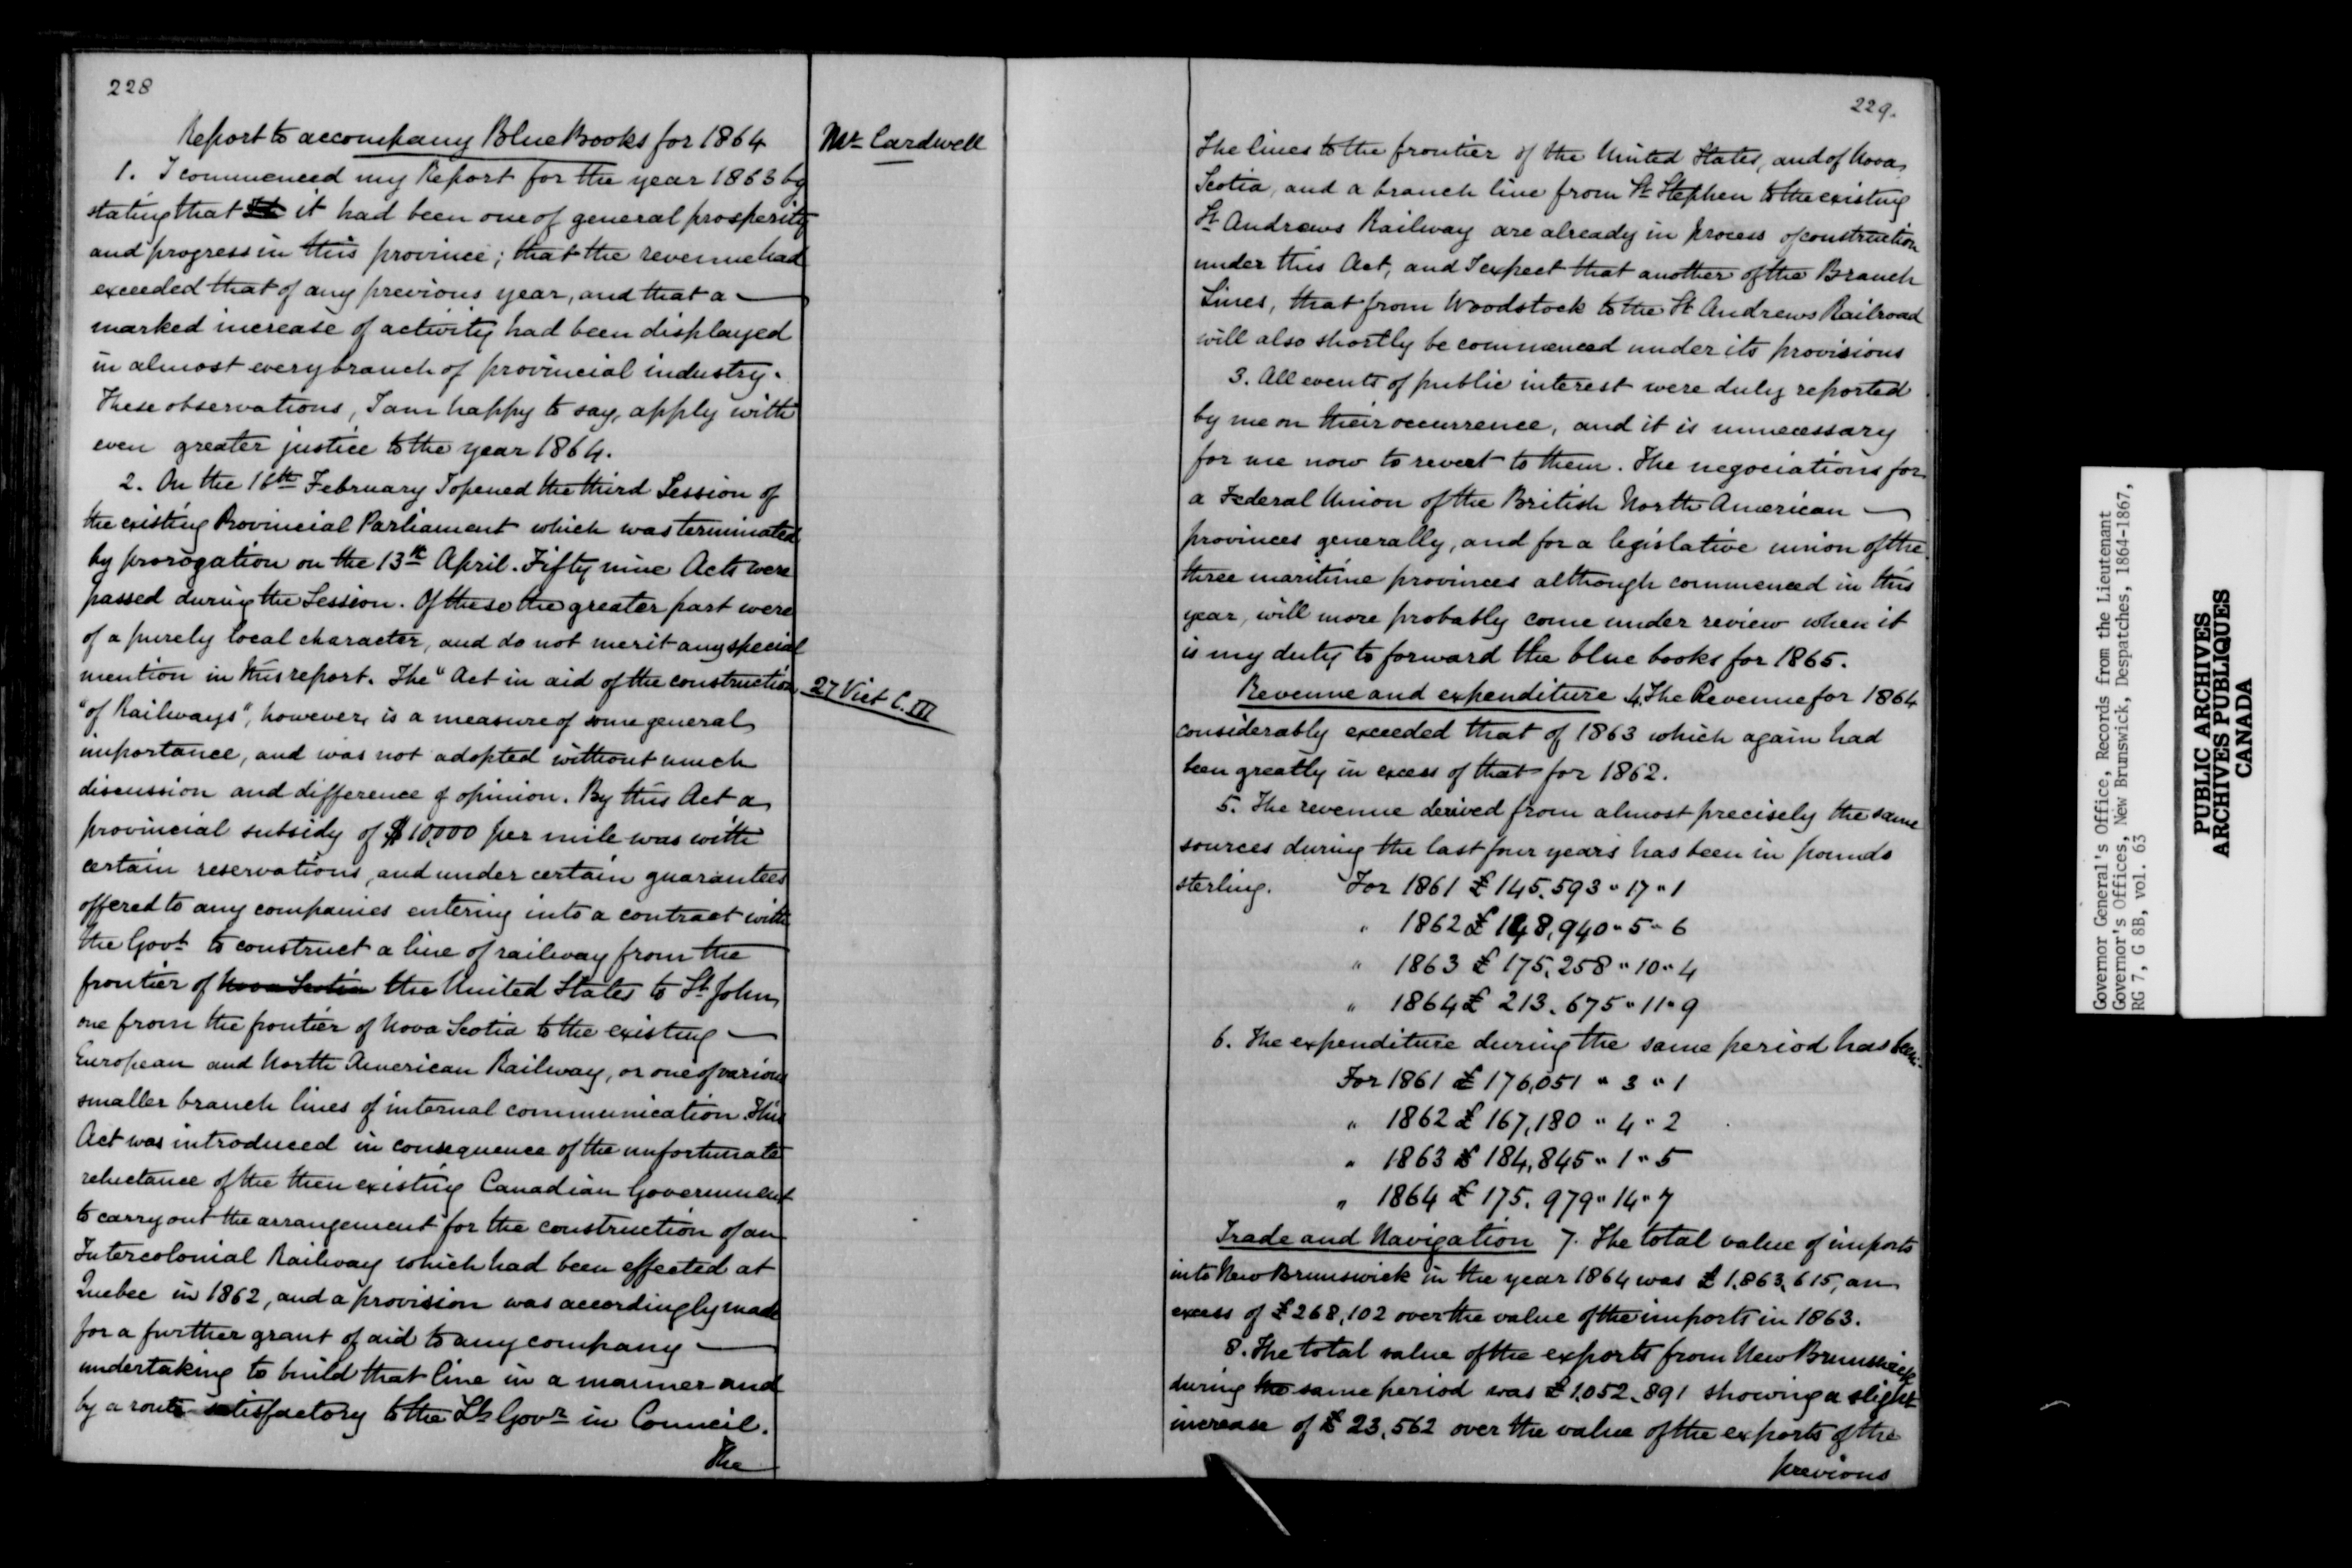 228
Report to accompany Blue Books for 1864
Mr Cardwell
1. I commenced my Report for the year 1863 by
stating that it had been one of general prosperity
and progress in this province; that the revenue had
exceeded that of any previous year, and that a —
marked increase of activity had been displayed
in almost every branch of provincial industry.
These observations, I am happy to say, apply with
even greater justice to the year 1864.
2. On the 16th February I opened the third Session of
the existing Provincial Parliament which was terminated
by prorogation on the 13th April. Fifty nine Acts were
passed during the Session. Of these the greater part were
of a purely local character, and do not merit any special
mention in this report. The "Act in aid of the construction
27 Vict C. III
"of Railways", however, is a measure of some general
importance, and was not adopted without much
discussion and difference of opinion. By this Act a
provincial subsidy of $10,000 per mile was with
certain reservations, and under certain guarantees
offered to any companies entering into a contract with
the Govt to construct a line of railway from the
frontier of Nova Scotia the United States to St John,
one from the frontier of Nova Scotia to the existing —
European and North American Railway, or one of various
smaller branch lines of internal communication. This
Act was introduced in consequence of the unfortunate
reluctance of the then existing Canadian Government
to carry out the arrangement for the construction of an
Intercolonial Railway which had been effected at
Quebec in 1862, and a provision was accordingly made
for a further grant of aid to any company —
undertaking to build that line in a manner and
by a route satisfactory to the Lt Govr in Council.
The
229.
The lines to the frontier of the United States, and of Nova
Scotia, and a branch line from St Stephen to the existing
St Andrews Railway are already in process of construction
under this Act, and I expect that another of the Branch
Lines, that from Woodstock to the St Andrews Railroad
will also shortly be commenced under its provisions
3. All events of public interest were duly reported
by me on their occurrence, and it is unnecessary
for me now to revert to them. The negociations for
a Federal Union of the British North American —
provinces generally, and for a legislative union of the
three maritime provinces although commenced in this
year, will more probably come under review when it
is my duty to forward the blue books for 1865.
Revenue and expenditure 4. The Revenue for 1864
considerably exceeded that of 1863 which again had
been greatly in excess of that for 1862.
5. The revenue derived from almost precisely the same
sources during the last four years has been in pounds
sterling. For 1861 £ 145,593 " 17 " 1
" 1862 £ 148,940 " 5 " 6
" 1863 £ 175,258 " 10 " 4
" 1864 £ 213,675 " 11 " 9
6. The expenditure during the same period has been:
For 1861 £ 176,051 " 3 " 1
" 1862 £ 167,180 " 4 " 2
" 1863 £ 184,845 " 1 " 5
" 1864 £ 175,979 " 14 " 7
Trade and Navigation 7. The total value of imports
into New Brunswick in the year 1864 was £1,863,615, an
excess of £268,102 over the value of the imports in 1863.
8. The total value of the exports from New Brunswick
during the same period was £1,052,891 showing a slight
increase of £23,562 over the value of the exports of the
previous
Governor General's Office, Records from the Lieutenant
Governor's Offices, New Brunswick, Despatches, 1864-1867,
RG 7, G 8B, vol. 63
PUBLIC ARCHIVES
ARCHIVES PUBLIQUES
CANADA